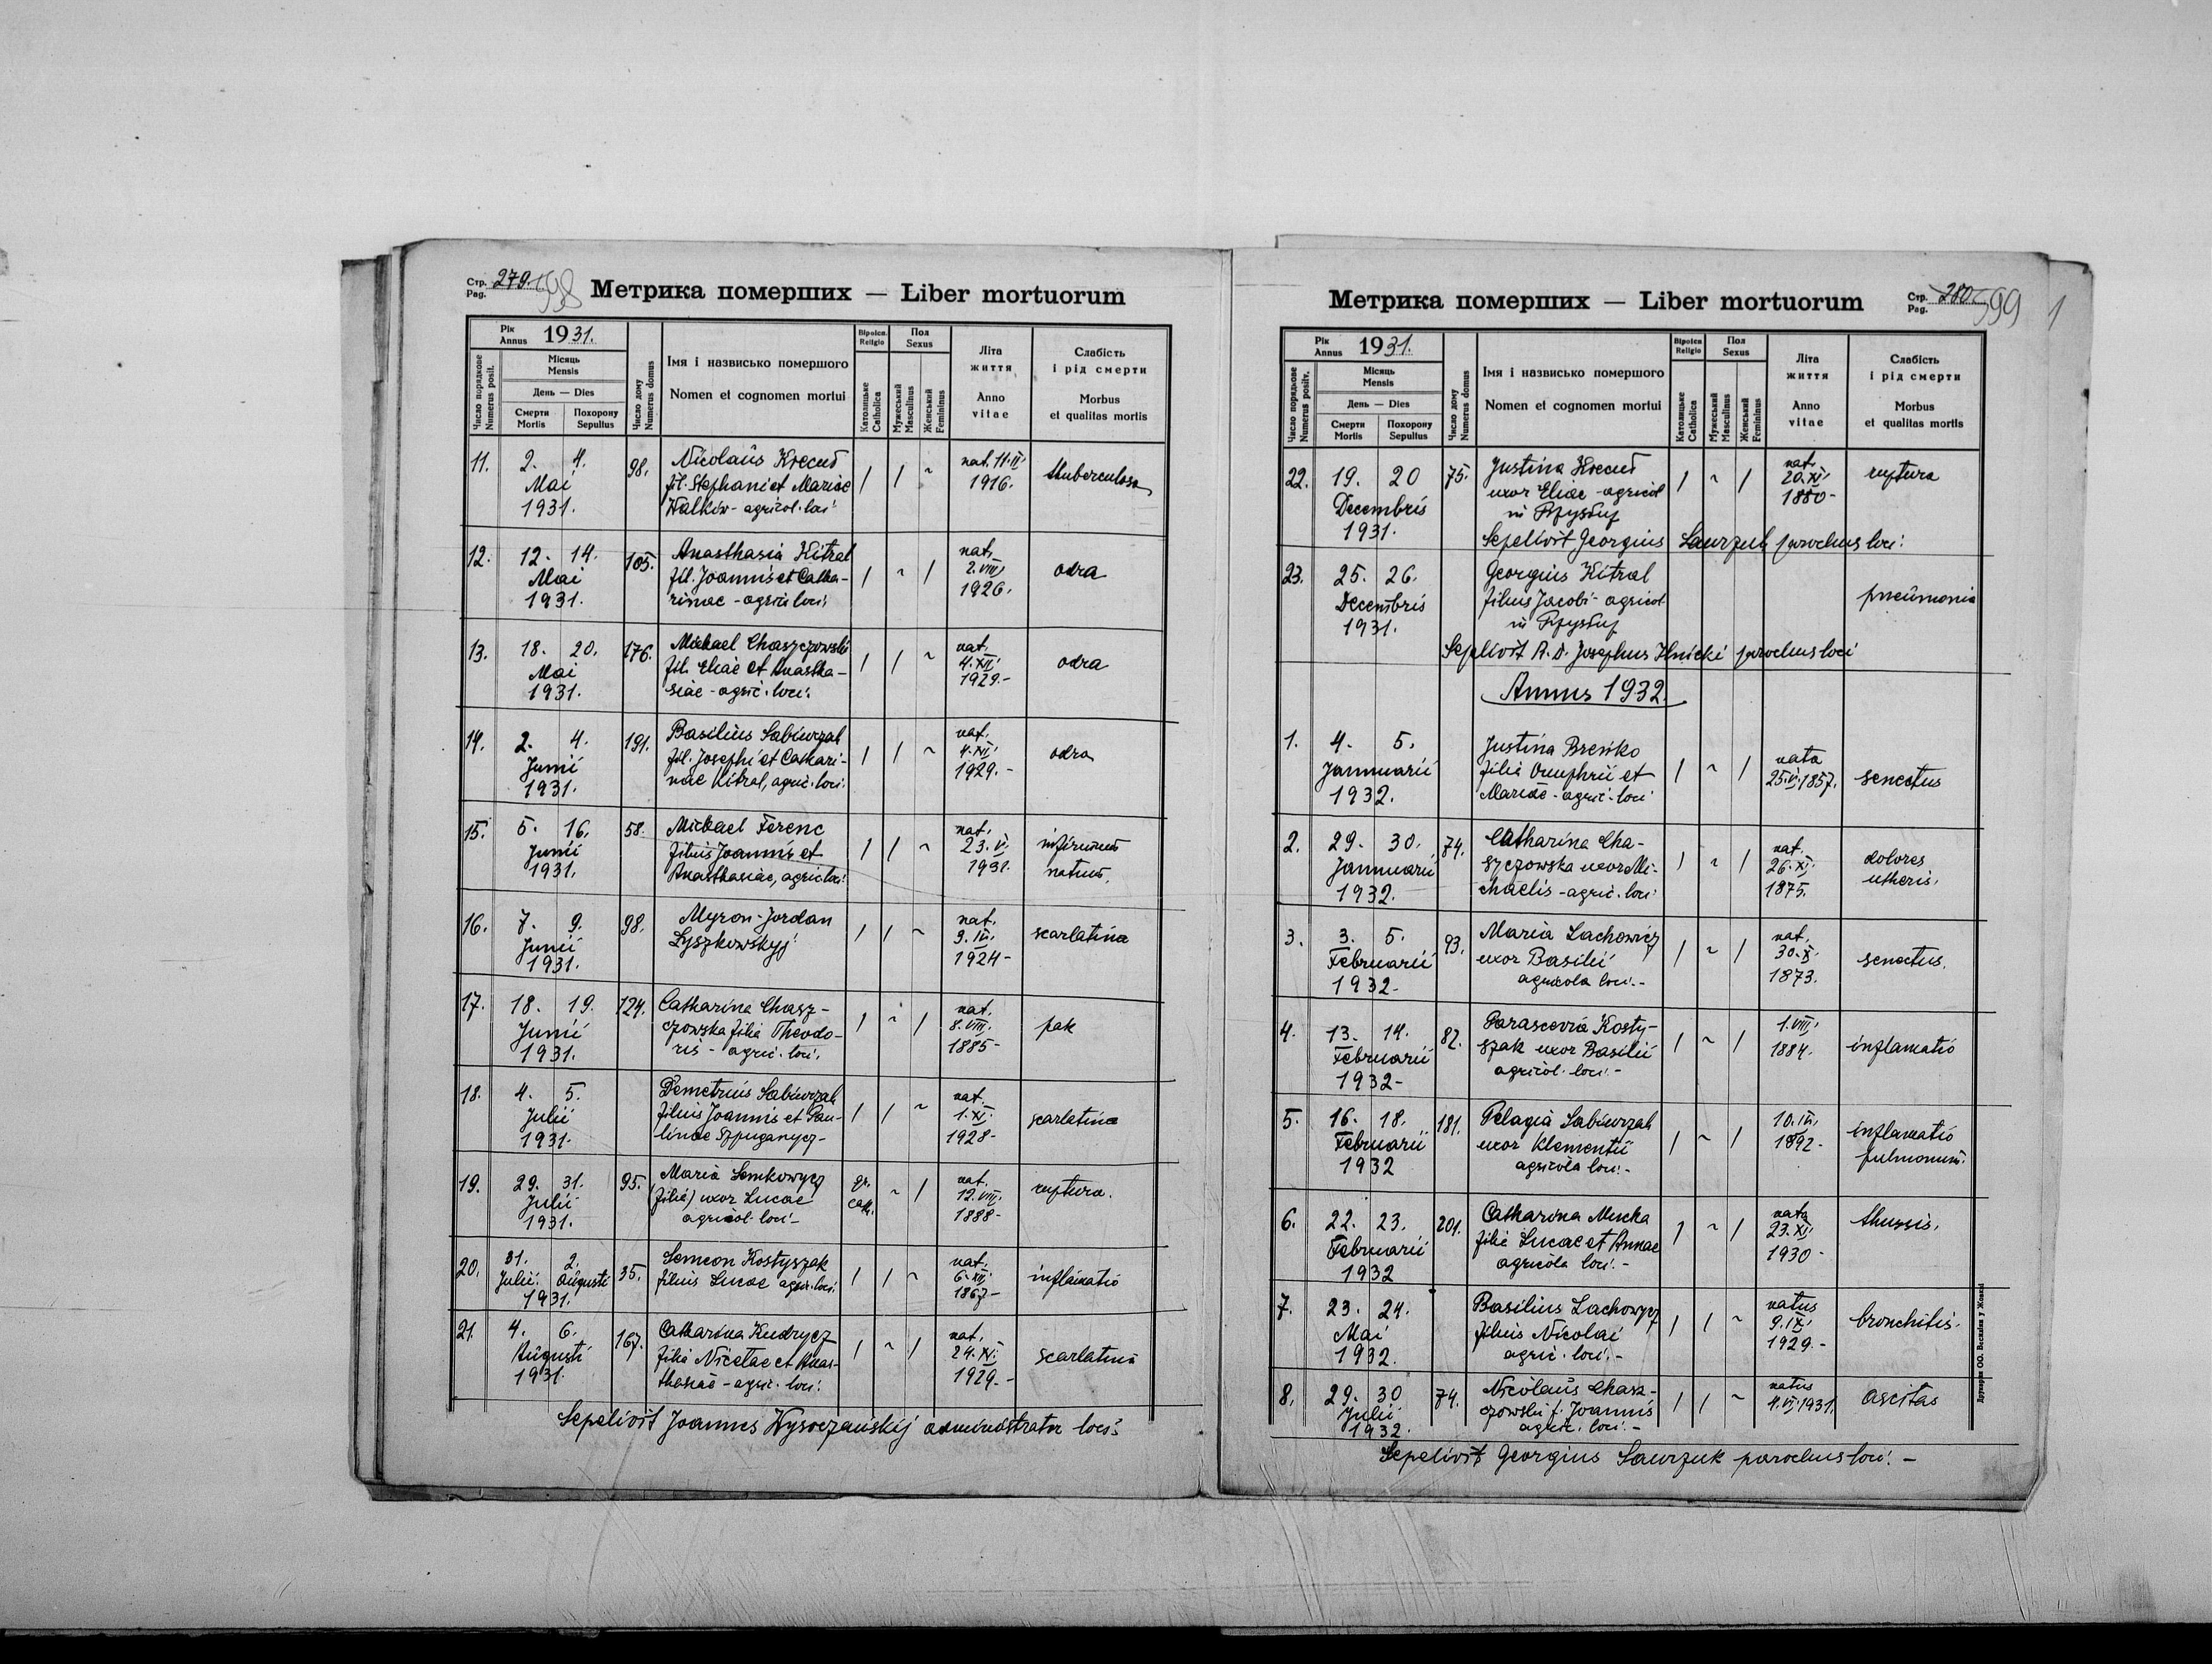 Стр. Pag. 279. 598
Метрика померших — Liber mortuorum
Рік Annus 1931.
Число порядкове Numerus posit.
Місяць Mensis
День — Dies
Смерти Mortis
Похорону Sepultus
Число дому Numerus domus
Імя і назвисько помершого
Nomen et cognomen mortui
Віроісп. Religio
Католицьке Catholica
Пол Sexus
Мужеський Masculinus
Женський Femininus
Літа життя
Anno vitae
Слабість і рід смерти
Morbus et qualitas mortis
11. 2. 4. Mai 1931. 98.
Nicolaus
fil. Stephani et Mariae
Walków - agricol. loci
nat. 11. II. 1916.
thuberculosa
12. 12. 14. Mai 1931. 105.
Anasthasia Kitral
fil. Joannis et Catha-
rinae - agric. loci.
nat. 2. VIII. 1926.
odra
13. 18. 20. Mai 1931. 176.
Michael Chaszczowski
fil. Eliae et Anastha-
siae - agric. loci.
nat. 4. XII. 1929.-
odra
14. 2. 4. Junii 1931. 191.
Basilius Sabiwczak
fil. Josephi et Cathari-
nae Kitral, agric. loci.
nat. 4. XII. 1929.-
odra
15. 5. 16. Junii 1931. 58.
Michael Ferenc
filius Joannis et
Anasthasiae, agric. loci.
nat. 23. V. 1931.
infirmum natum.
16. 7. 9. Junii 1931. 98.
Myron-Jordan
Lyszkowskyj
nat. 9. III. 1924-
scarlatina
17. 18. 19. Junii 1931. 124.
Catharina Chasz-
czowska filia Theodo-
ris - agric. loci.
nat. 8. VIII. 1885-
rak
18. 4. 5. Julii 1931.
Demetrius Sabiwczak
filius Joannis et Pau-
linae
nat. 1. XI. 1928-
scarlatina
19. 29. 31. Julii 1931. 95.
Maria Senkowycz
(filia) uxor Lucae
agricol. loci-
gr. cath.
nat. 12. VIII. 1888-
ruptura.
20. 31. Julii. 2. Augusti 1931. 35.
Semeon Kostyszak
filius Lucae agric. loci.
nat. 6. XII. 1867-
inflamatio
21. 4. 6. Augusti 1931. 167.
Catharina Kudrycz
filia Nicetae et Anas-
thasiae - agric. loci.
nat. 24. XI. 1929.-
scarlatina
Sepelivit Joannes Wysoczanskij administrator loci.
Метрика померших — Liber mortuorum
Стр. Pag. 280 599 1
Рік Annus 1931.
Число порядкове Numerus positv.
Місяць Mensis
День — Dies
Смерти Mortis
Похорону Sepultus
Число дому Numerus domus
Імя і назвисько помершого
Nomen et cognomen mortui
Віроісп. Religio
Католицьке Catholica
Пол Sexus
Мужеський Masculinus
Женський Femininus
Літа життя
Anno vitae
Слабість і рід смерти
Morbus et qualitas mortis
22. 19. 20 Decembris 1931. 75.
Justina
uxor Eliae - agricol
in
nat. 20. XI. 1880-
ruptura
Sepelivit Georgius Sawrzuk parochus loci.
23. 25. 26. Decembris 1931.
Georgius Kitral
filius Jacobi - agricol
in
pneumonia
Sepelivit A. D. Josephus Ilnicki parochus loci
Annus 1932.
1. 4. 5. Jannuarii 1932.
Justina Breńko
filia Onuphrii et
Mariae - agric. loci
nata 25. V. 1857.
senectus
2. 29. 30. Jannuarii 1932. 74.
Catharina Cha-
szczowska uxor Mi-
chaelis - agric. loci
nat. 26. XI. 1875.
dolores utheris.
3. 3. 5. Februarii 1932- 93.
Maria Lachowicz
uxor Basilii
agricola loci.-
nat. 30. X. 1873.
senectus.
4. 13. 14. Februarii 1932- 82.
Parascevia Kosty-
szak uxor Basilii
agricol. loci.-
1. VIII. 1884.
inflamatio
5. 16. 18. Februarii 1932 181.
Pelagia Sabiwczak
uxor Klementii
agricola loci.-
10. III. 1892-
inflamatio pulmonum.
6. 22. 23. Februarii 1932 201.
Catharina Mucka
filia Lucae et Annae
agricola loci.-
nata 23. XI. 1930-
thussis.
7. 23. 24. Mai 1932.
Basilius Lachowycz
filius Nicolai
agric. loci.-
natus 9. IX. 1929.-
bronchitis.
8. 29. 30 Julii 1932. 74.
Nicolaus Chasz-
czowski f. Joannis
agric. loci.-
natus 4. VI. 1931.
ascitas
Sepelivit Georgius Sawrzuk parochus loci.-
Друкарня ОО. Василіян у Жовкві